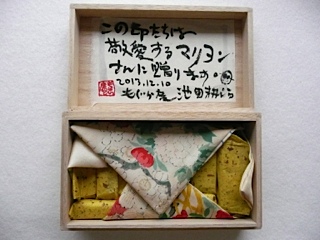 この印たちは
敬愛するマリヨン
さんに贈ります。
2013.12.10
もぐら庵 池田耕治